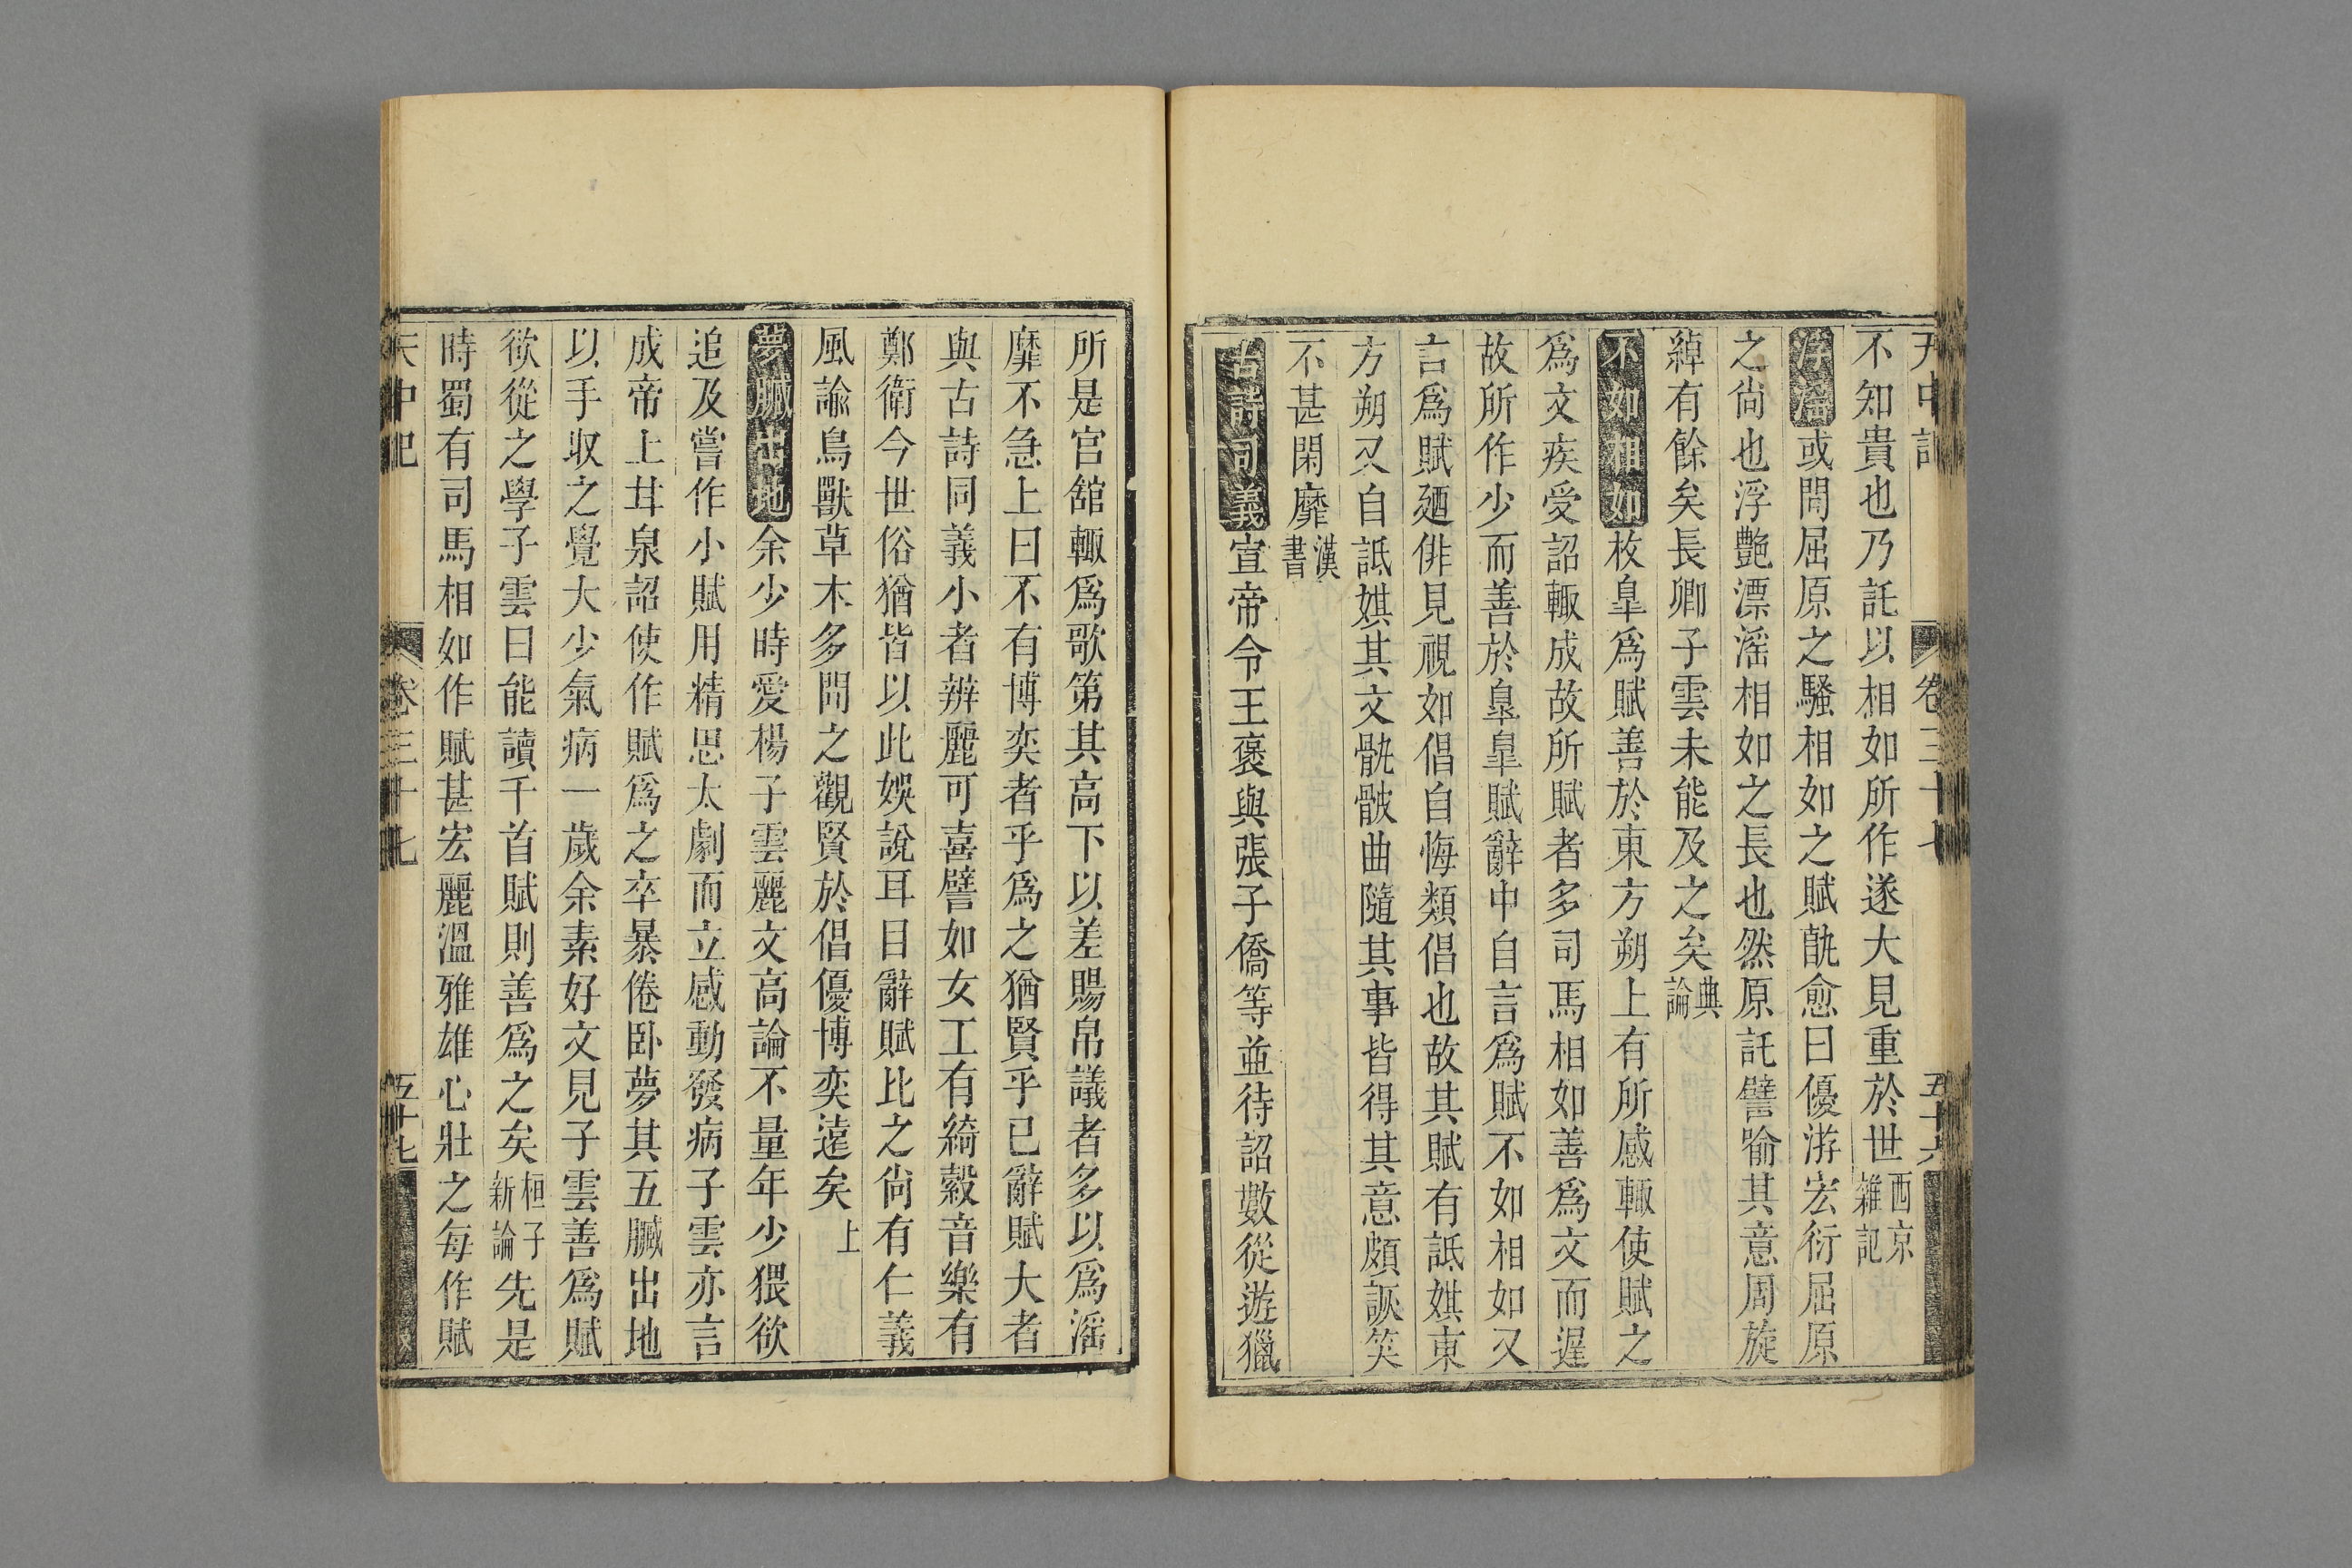 天中記 卷三十七 五十六
不知貴也乃託以相如所作遂大見重於世西京雜記
浮滛或問屈原之騷相如之賦孰愈曰優游宏衍屈原
之尙也浮艷漂滛相如之長也然原託譬喻其意周旋
綽有餘矣長卿子雲未能及之矣典論
不如相如枚臯爲賦善於東方朔上有所感輒使賦之
爲文疾受詔輒成故所賦者多司馬相如善爲文而遲
故所作少而善於臯臯賦辭中自言爲賦不如相如又
言爲賦廼俳見視如倡自悔類倡也故其賦有詆娸東
方朔又自詆娸其文骫骳曲隨其事皆得其意頗詼笑
不甚閑靡漢書
古詩同義宣帝令王褒與張子僑等並待詔數從遊獵
所是宮舘輒爲歌第其高下以差賜帛議者多以爲滛
靡不急上曰不有博奕者乎爲之猶賢乎已辭賦大者
與古詩同義小者辨麗可喜譬如女工有綺縠音樂有
鄭衛今世俗猶皆以此娛說耳目辭賦比之尙有仁義
風諭鳥獸草木多問之觀賢於倡優博奕遠矣上
夢臟出地余少時愛楊子雲麗文高論不量年少猥欲
追及嘗作小賦用精思太劇而立感動發病子雲亦言
成帝上甘泉詔使作賦爲之卒暴倦卧夢其五臟出地
以手収之覺大少氣病一歲余素好文見子雲善爲賦
欲從之學子雲曰能讀千首賦則善爲之矣桓子新論先是
時蜀有司馬相如作賦甚宏麗溫雅雄心壯之每作賦
天中記 卷三十七 五十七